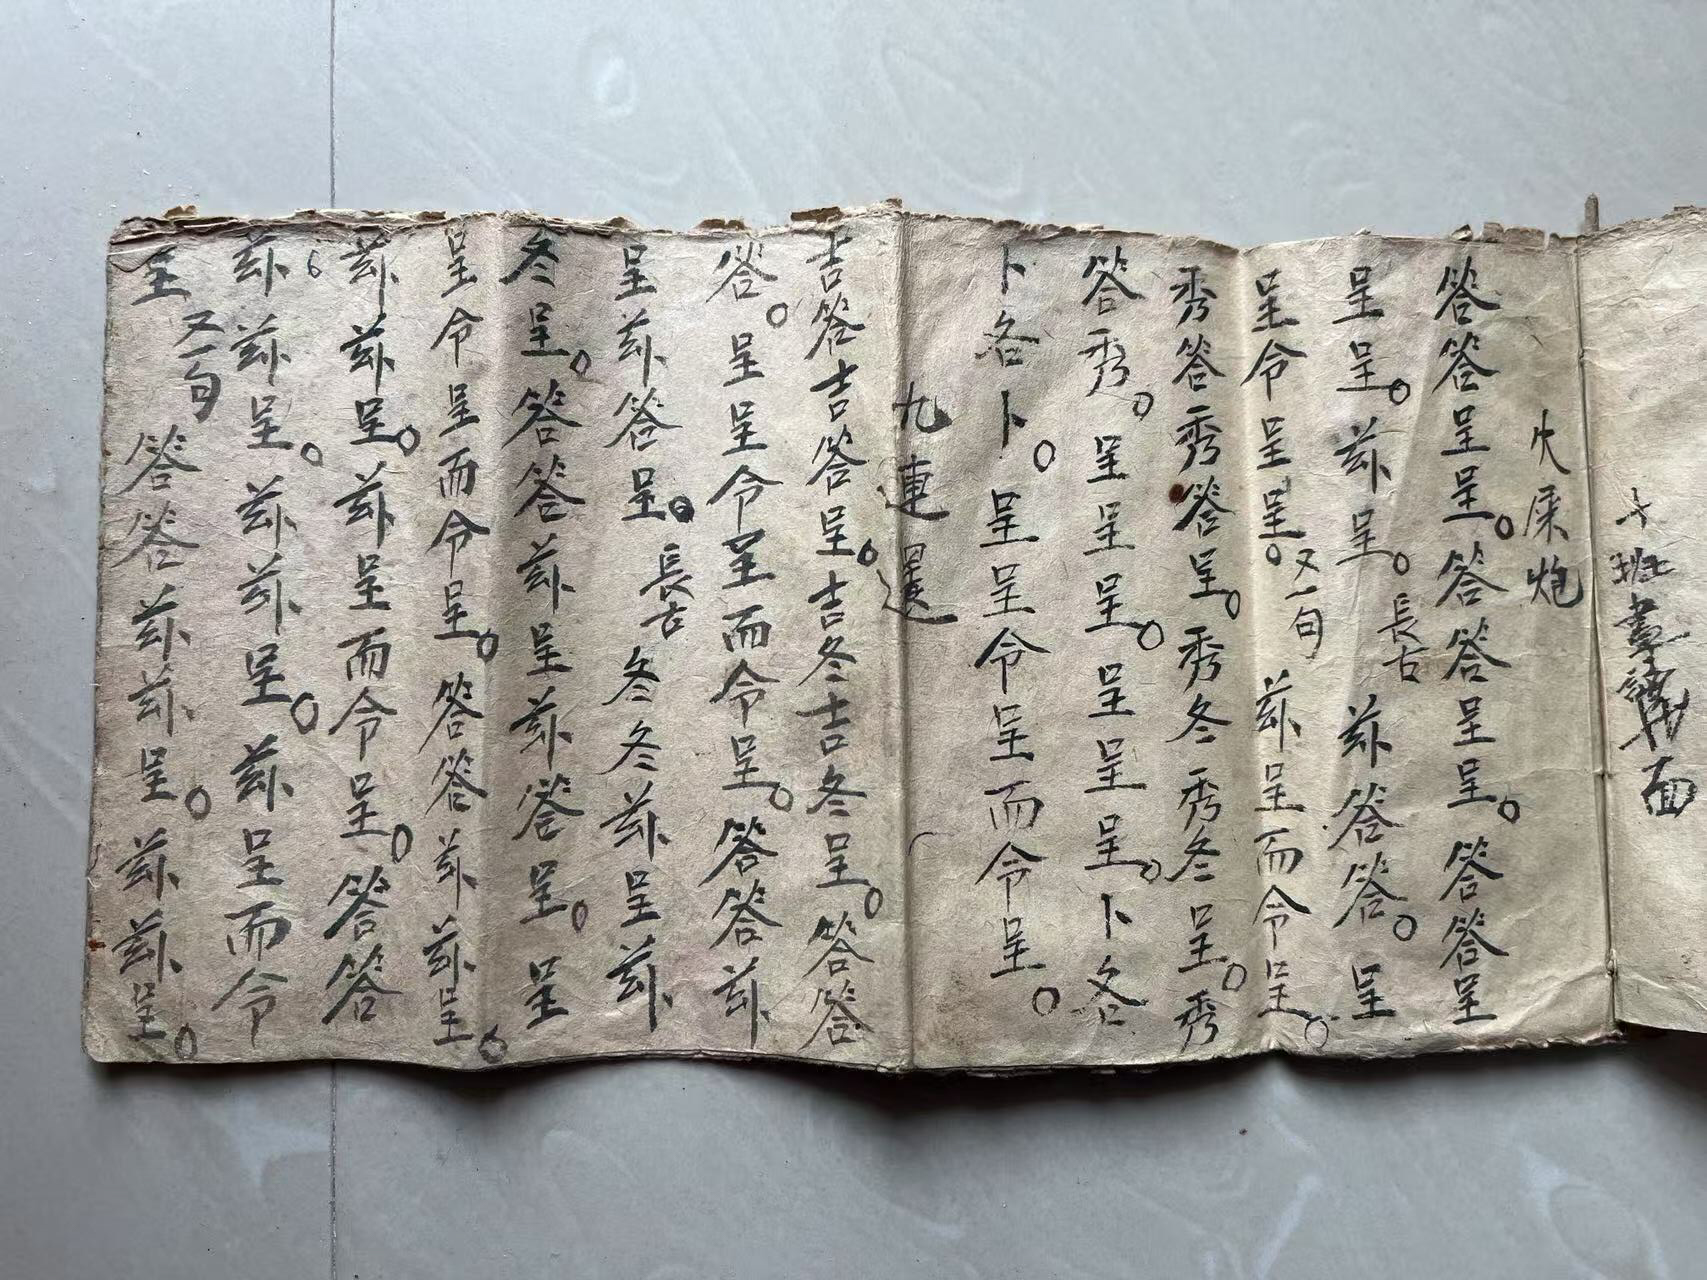 十班畫
面
火屎炮
答答呈呈。答答呈呈。答答呈
呈呈。茲呈。長古 茲答答。呈
呈令呈呈。又一句 茲呈而令呈。
秀答秀答呈。秀冬秀冬呈。秀
答秀。呈呈呈。呈呈呈。卜各
卜各卜。呈呈令呈而令呈。
九連還
吉答吉答呈。吉冬吉冬呈。答答
答。呈呈令呈而令呈。答答茲
呈茲答呈。長古 冬冬茲呈茲
冬呈。答答茲呈茲答呈。呈
呈令呈而令呈。答答茲茲呈。
茲茲呈。茲呈而令呈。答答
茲茲呈。茲茲呈。茲呈而令
呈 又一句 答答茲茲呈。茲茲呈。